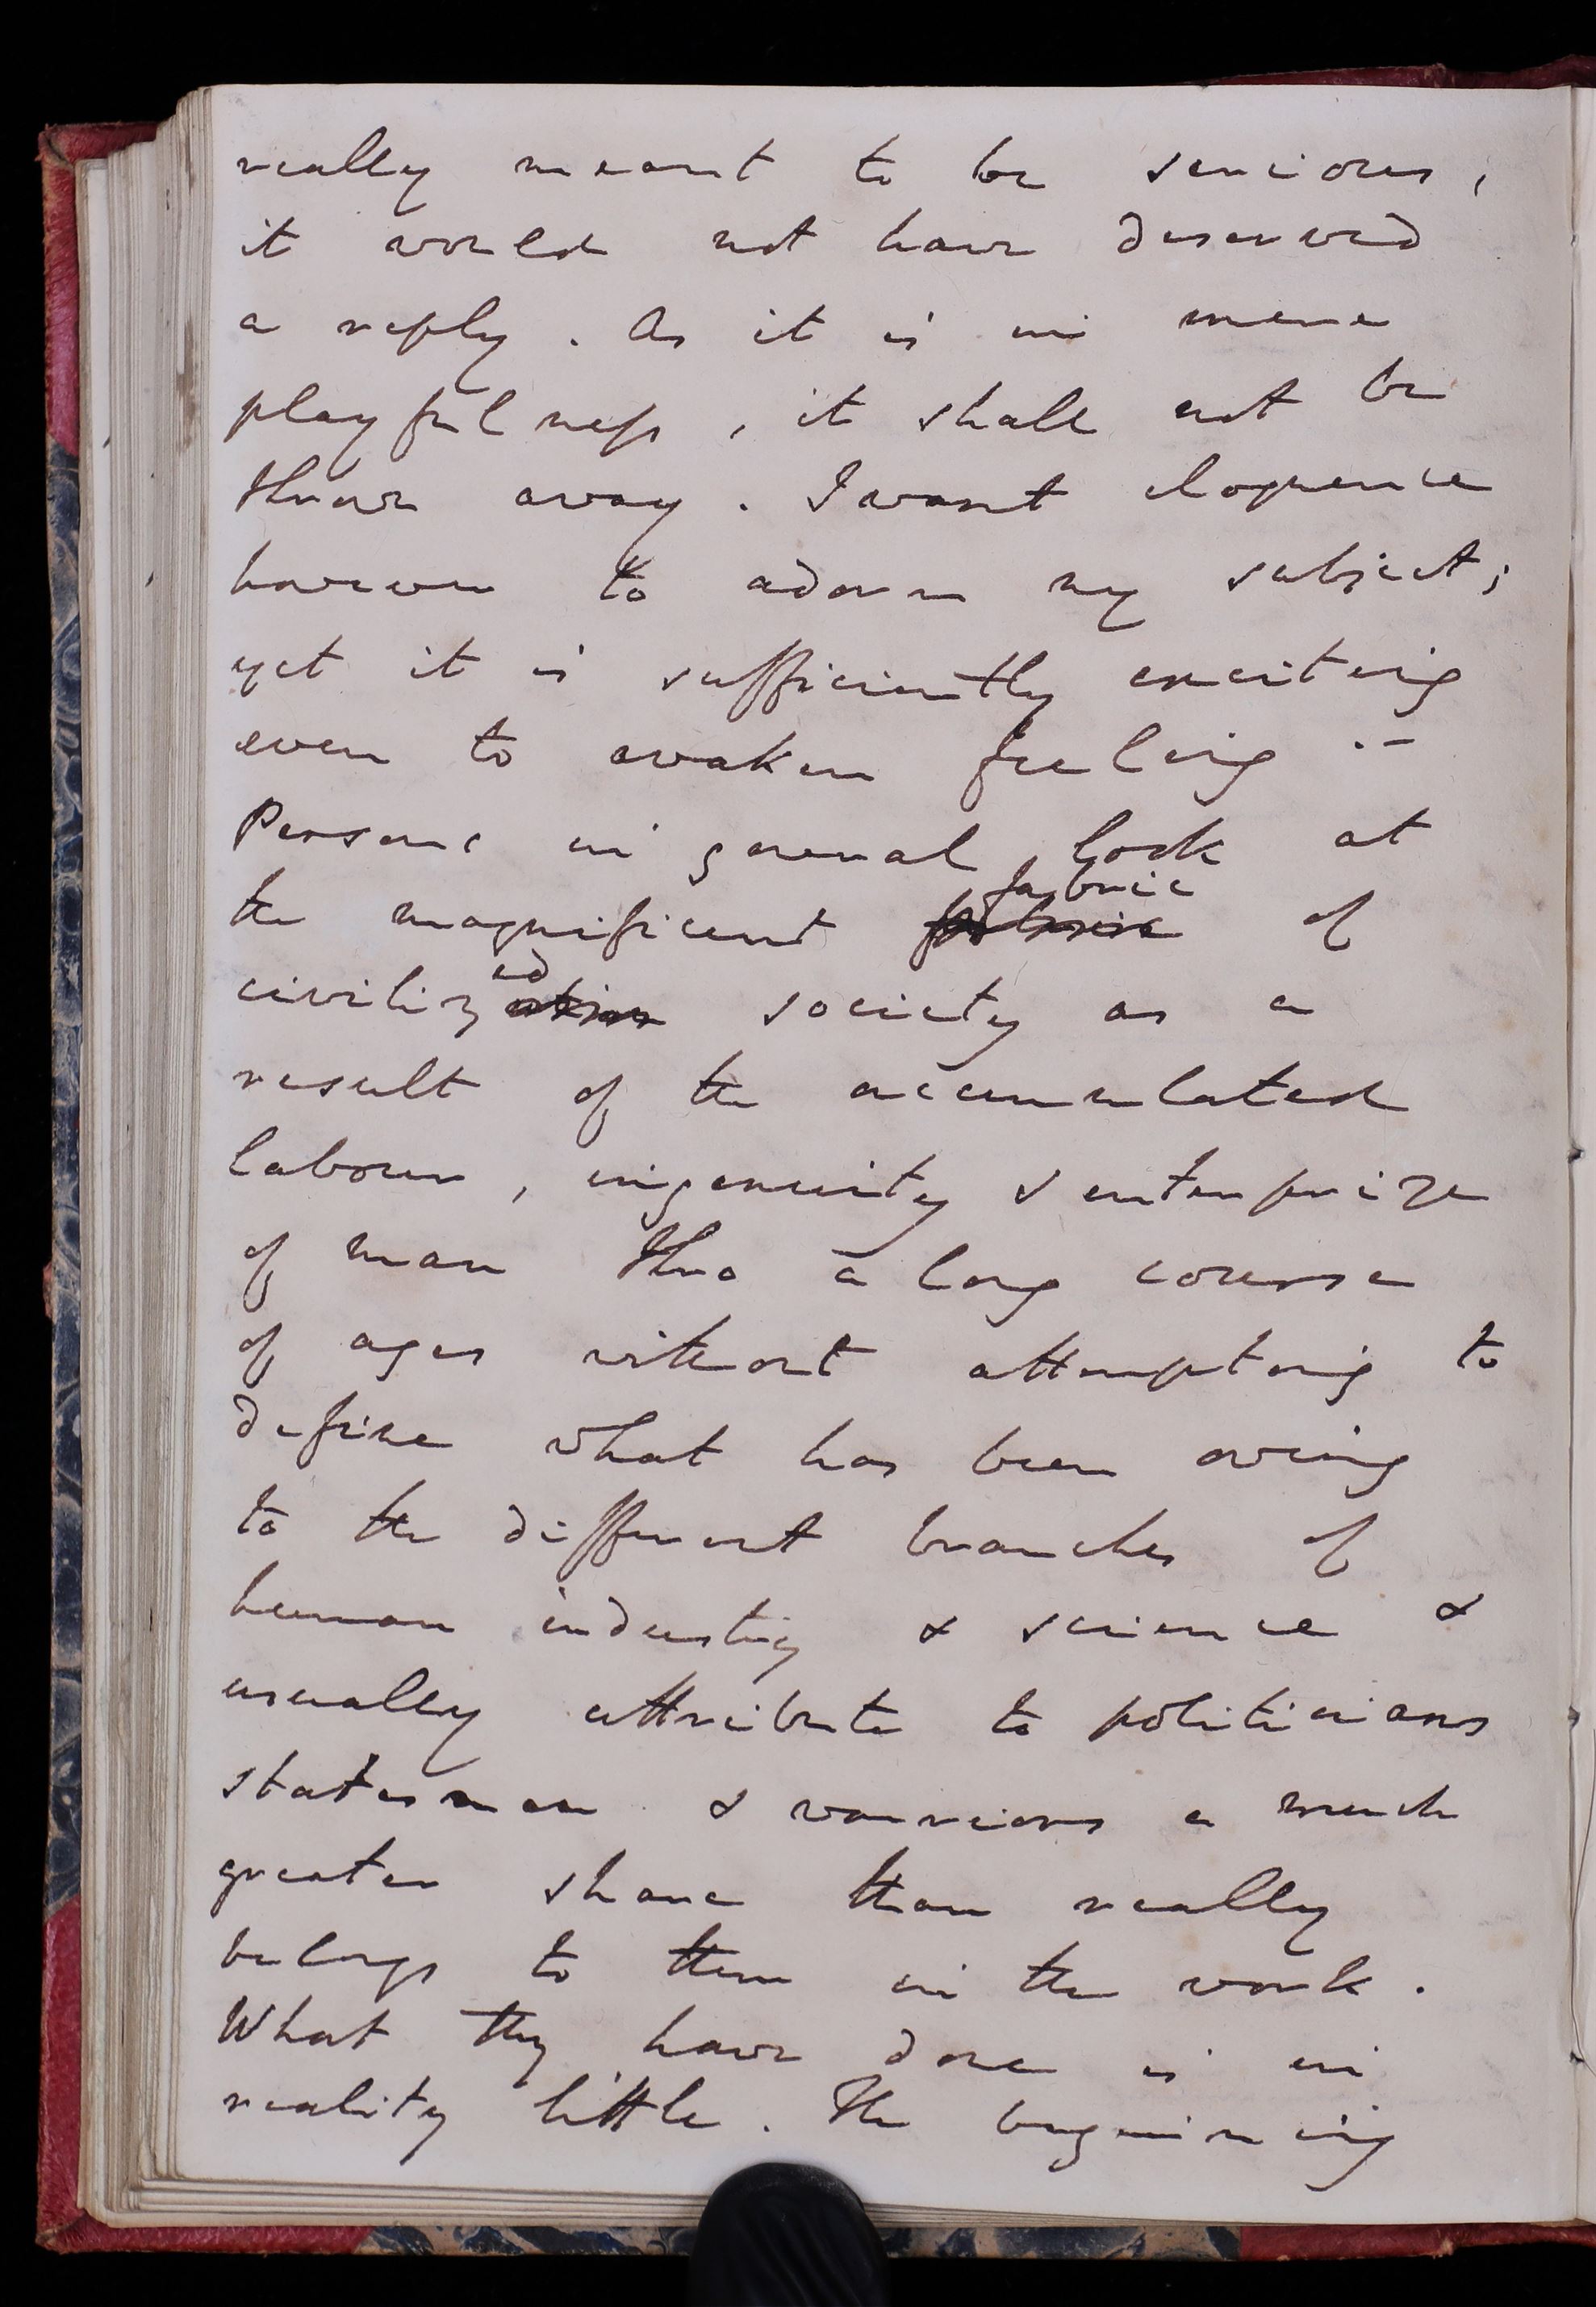 really meant to be serious,
it would not have deserved
a reply. As it is in mere
playfulness, it shall not be
thrown away. I want eloquence
however to adorn my subject;
yet it is sufficiently exciting
even to awaken feeling :-
Persons in general look at
the magnificent fabric of
civilized society as a
result of the accumulated
labour, ingenuity & enterprize
of man thro a long course
of ages without attempting to
define what has been owing
to the different branches of
human industry & science &
usually attribute to politicians
statesmen & warriors a much
greater share than really
belongs to them in the work.
What they have done is in
reality little. The beginning